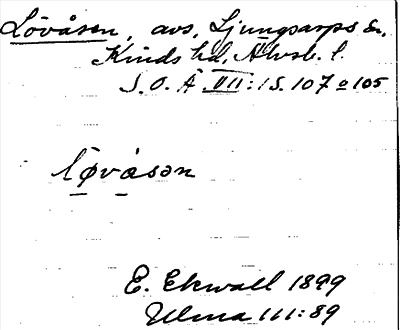 Lövåsen, avs, Ljungsarps sn,
Kinds hd, Älvsb. l.
S.O.Ä VII:1 S. 107 o 105
lø̄vå̠sən
E. Ekwall 1899
Ulma 111:89